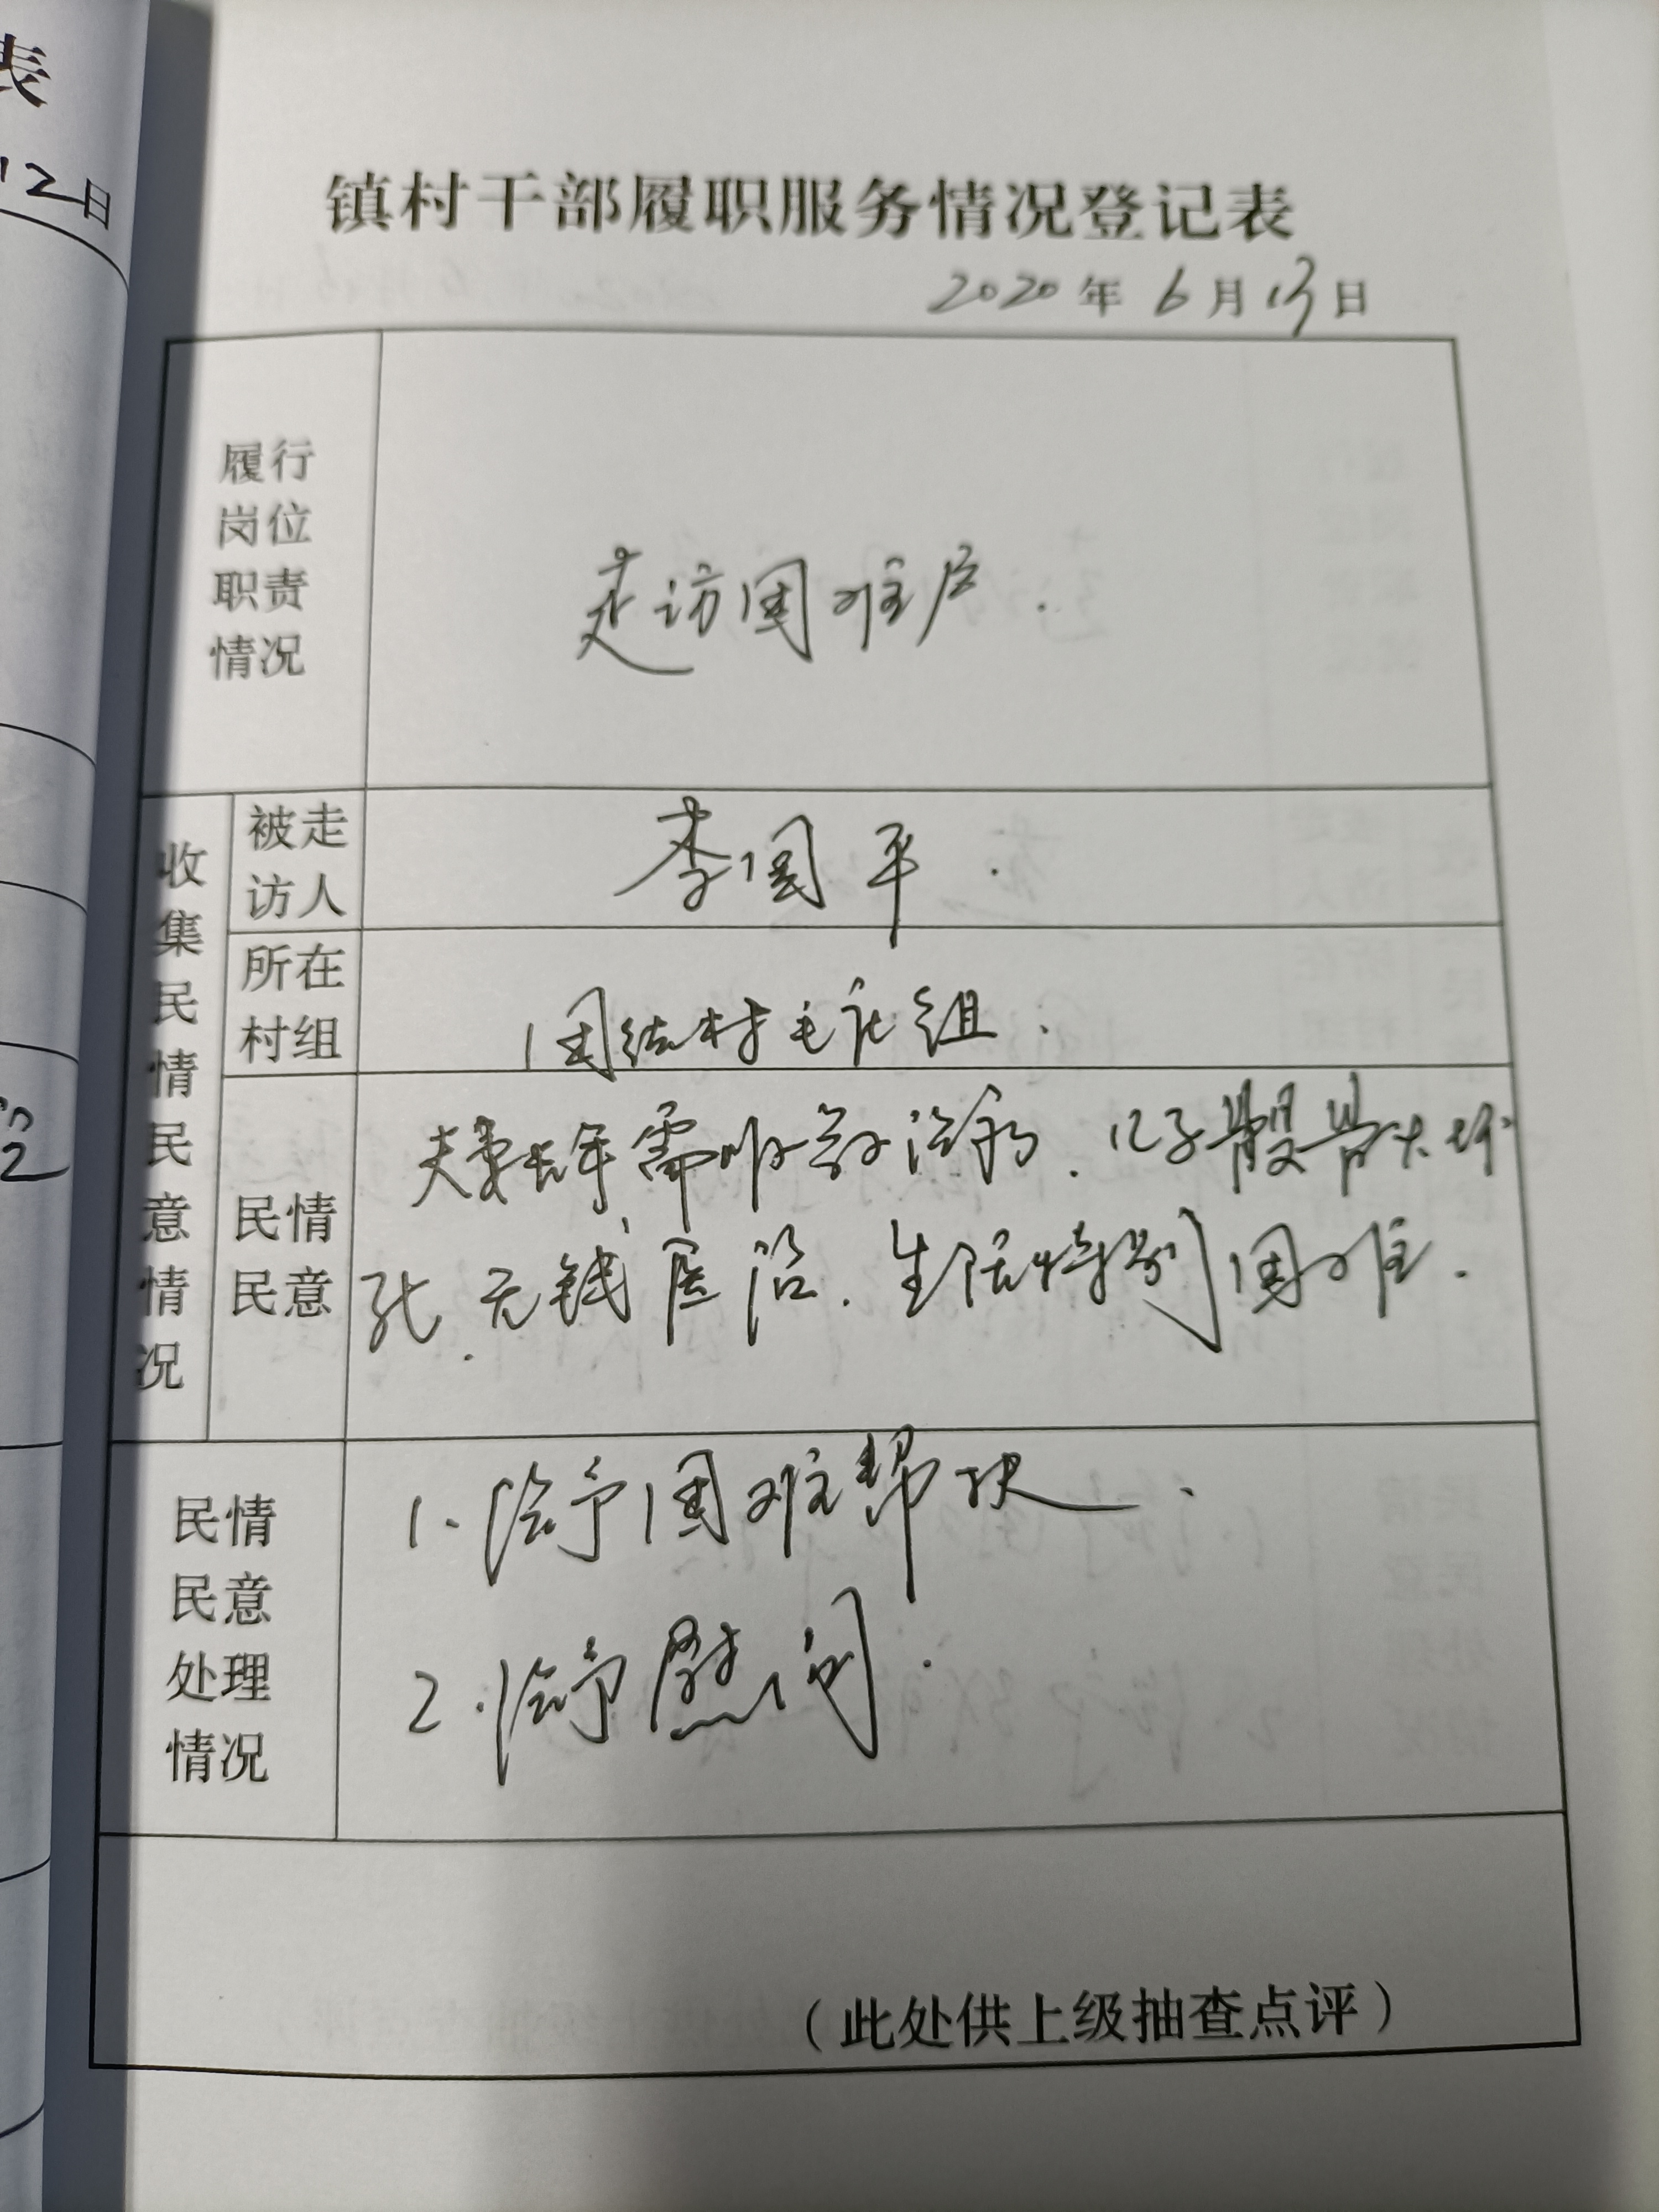 表
12日
镇村干部履职服务情况登记表
2020年6月13日
履行
岗位
职责
情况
走访困难户.
收集民情民意情况
被走
访人
李国平.
所在
村组
团结村毛庄组.
民情
民意
夫妻长年需吃药治病.儿子股骨头坏
死.无钱医治.生活特别困难.
民情
民意
处理
情况
1.给予困难帮扶.
2.给予慰问.
(此处供上级抽查点评)